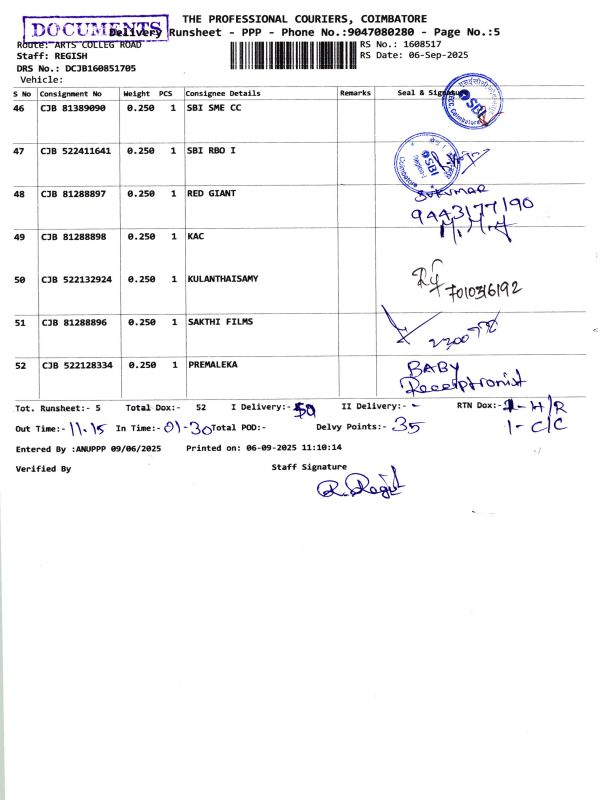 THE PROFESSIONAL COURIERS, COIMBATORE
DOCUMENTS
Delivery Runsheet - PPP - Phone No.:9047080280 - Page No.:5
Route: ARTS COLLEG ROAD
RS No.: 1608517
Staff: REGISH
RS Date: 06-Sep-2025
DRS No.: DCJB160851705
Vehicle:
S No Consignment No Weight PCS Consignee Details Remarks Seal & Signature
46 CJB 81389090 0.250 1 SBI SME CC
SBI
Coimbatore
47 CJB 522411641 0.250 1 SBI RBO I
SBI
Coimbatore
48 CJB 81288897 0.250 1 RED GIANT
SUKUMAR
9443177190
49 CJB 81288898 0.250 1 KAC
50 CJB 522132924 0.250 1 KULANTHAISAMY
7010316192
51 CJB 81288896 0.250 1 SAKTHI FILMS
52 CJB 522128334 0.250 1 PREMALEKA
BABY
Receptionist
Tot. Runsheet:- 5 Total Dox:- 52 I Delivery:- 50 II Delivery:- - RTN Dox:- 1-H/R
1-C/C
Out Time:- 11.15 In Time:- 01-30 Total POD:- Delvy Points:- 35
Entered By :ANUPPP 09/06/2025 Printed on: 06-09-2025 11:10:14
Verified By Staff Signature
R. Regish